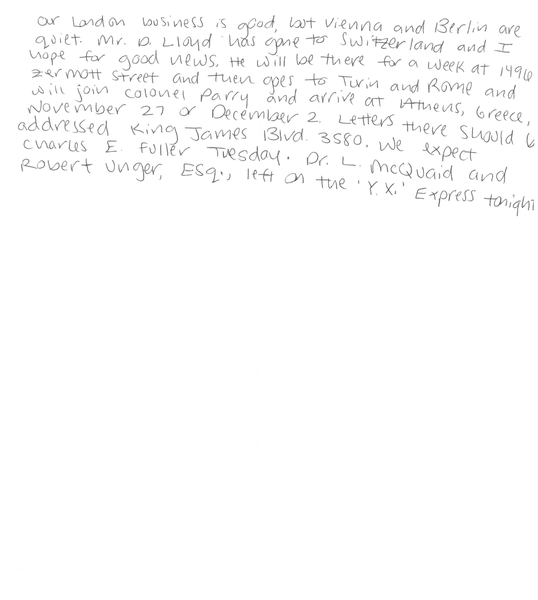 our London business is good, but Vienna and Berlin are
quiet. Mr. D. Lloyd has gone to Switzerland and I
hope for good news. He will be there for a week at 1496
zermott street and then goes to Turin and Rome and
will join Colonel Parry and arrive at Athens, Greece,
November 27 or December 2. Letters there should b
addressed King James Blvd. 3580. We expect
Charles E. Fuller Tuesday. Dr. L. McQuaid and
Robert Unger, ESQ., left on the 'Y.X.' Express tonight